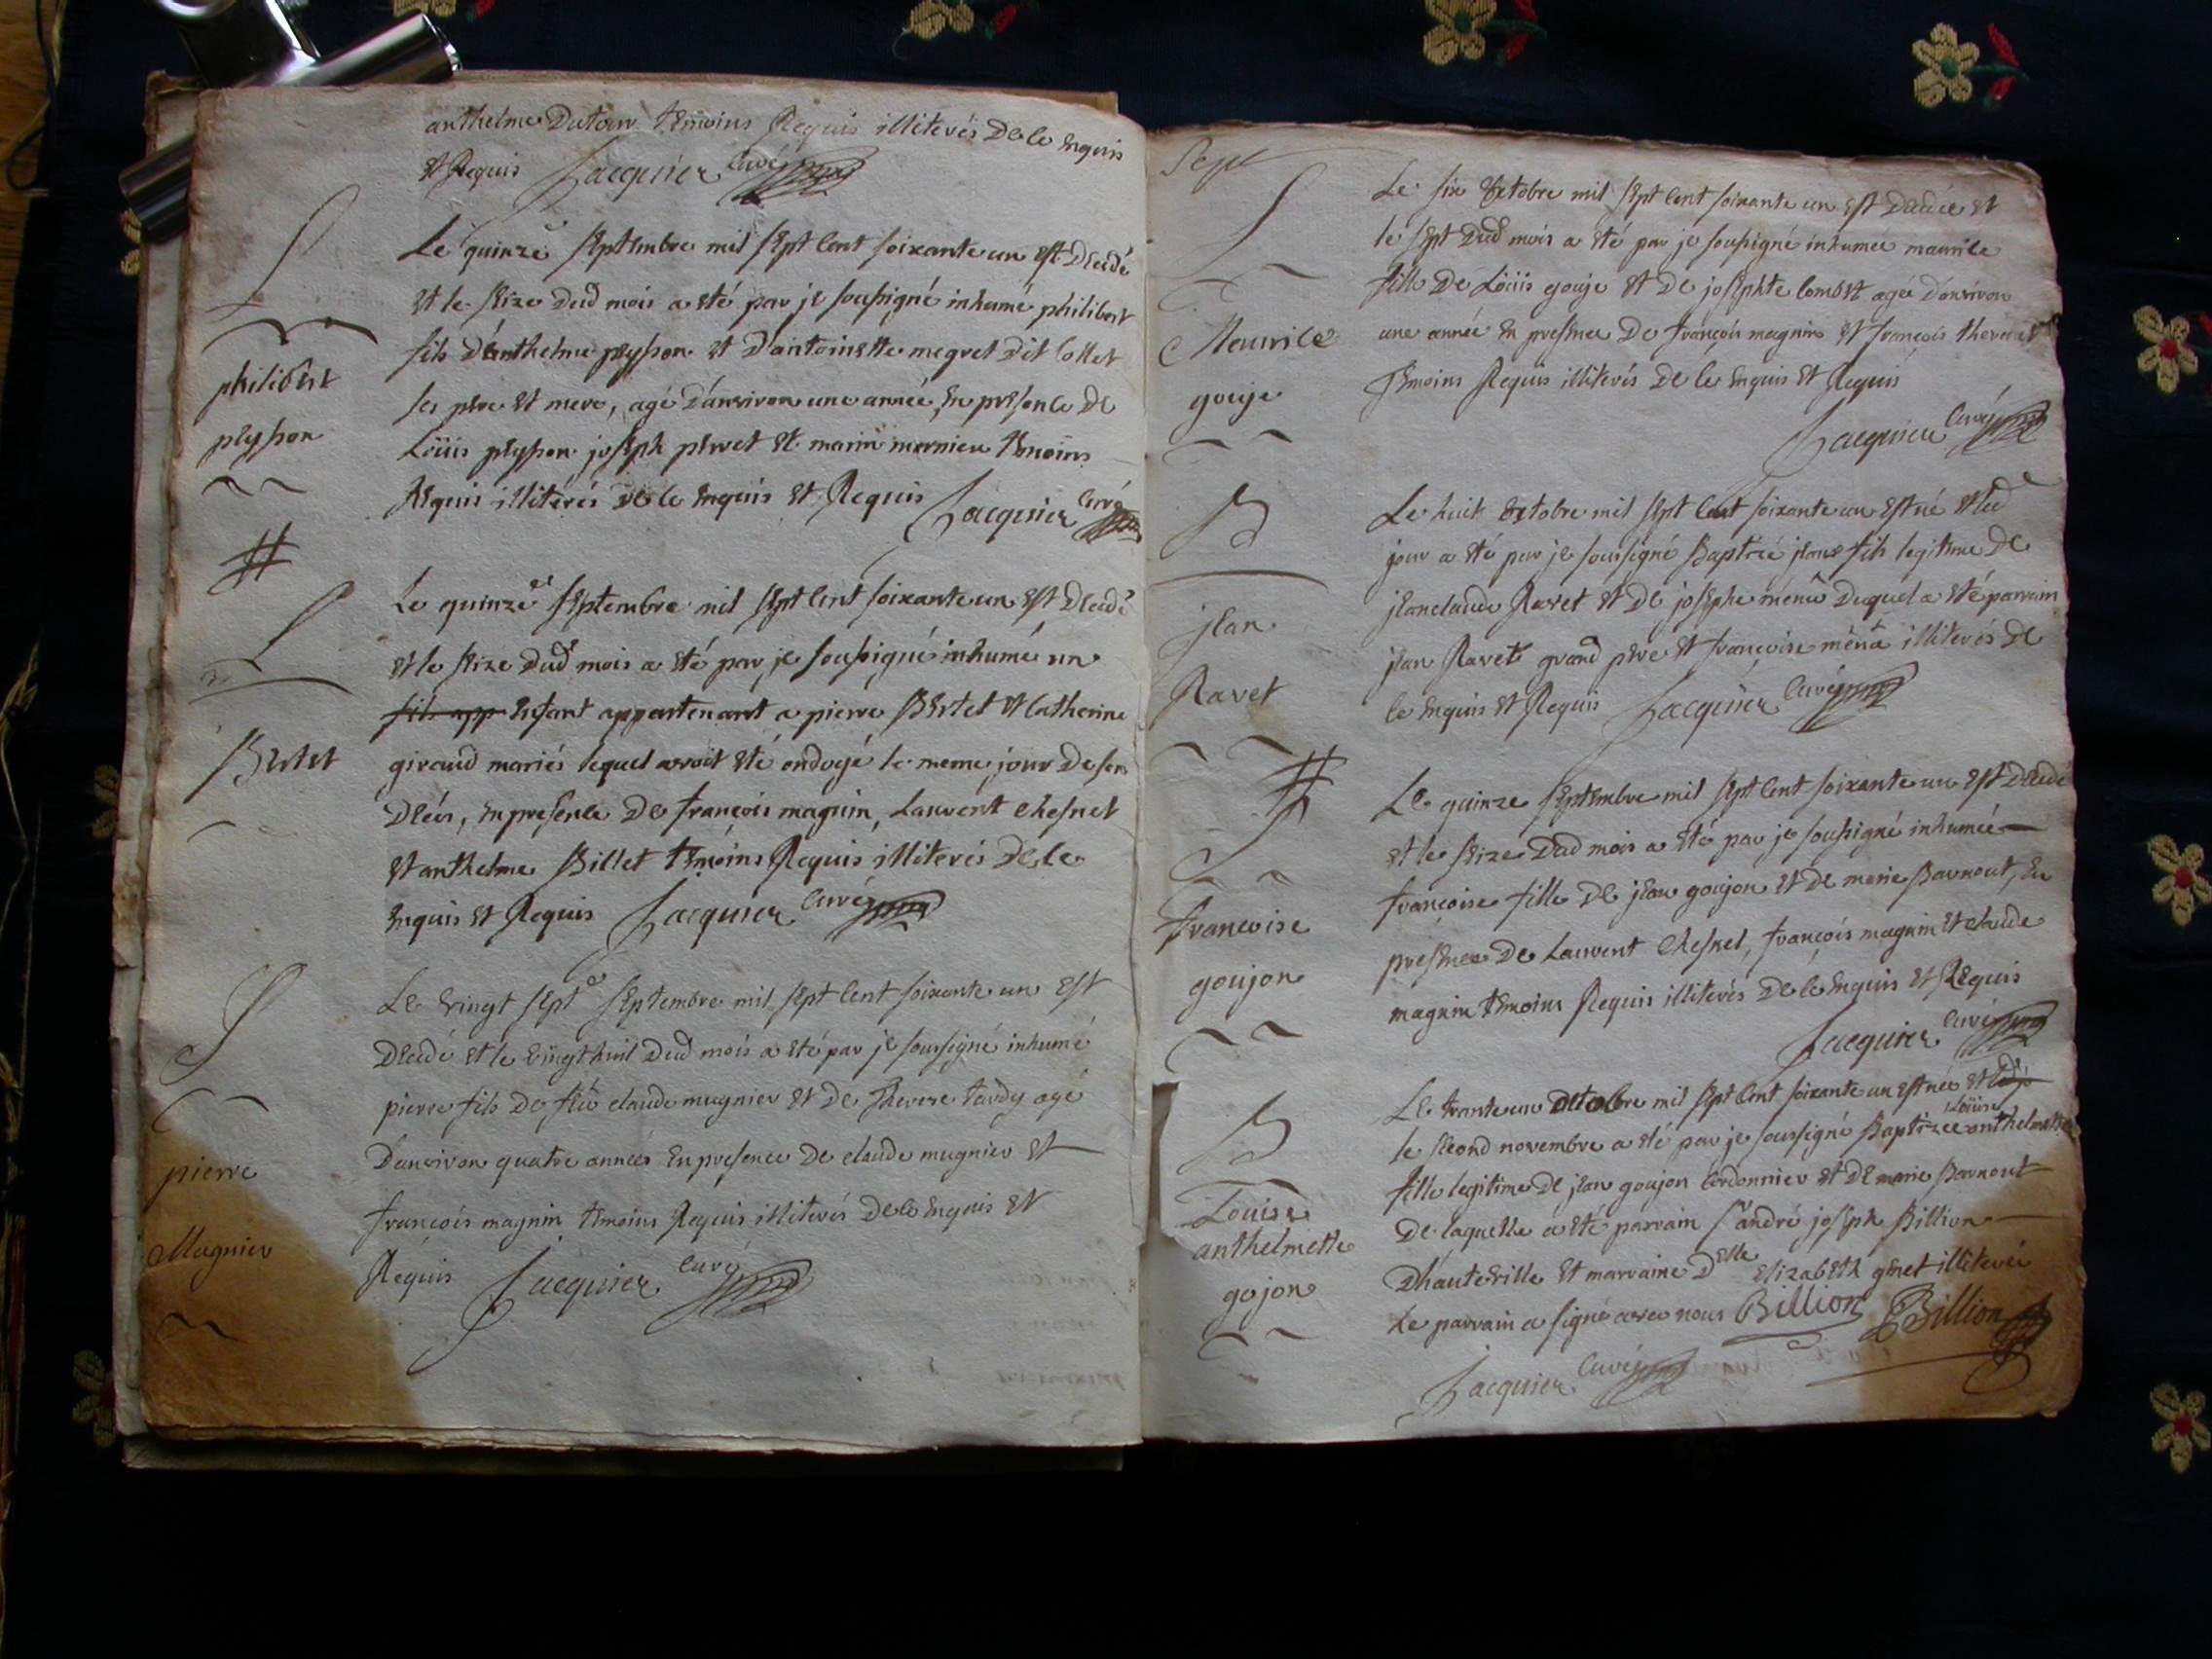 anthelme Dutour témoins Requis illiterés de ce enquis
et Requis Jacquier Curé
Le quinze septembre mil sept cent soixante un est decedé
et le seize dud mois a eté par je soussigné inhumé philibert
fils d'anthelme peysson et d'antoinette megret dit Collet
ses pere et mere, agé d'anviron une année, en présence de
Loüis peysson joseph pervet et marin mornieu témoins
Requis illitérés de ce enquis et Requis Jacquier Curé
philibert
peysson
#
Le quinze septembre mil sept cent soixante un est decedé
et le seize dud mois a eté par je soussigné inhumé un
fils app enfant appartenant a pierre Bertet et Catherine
giraud mariés lequel avoit eté ondoyé le meme jour de son
decés, en presence de françois magnin, Laurent Chesnel
et anthelme Billet témoins Requis illiterés de ce
enquis et Requis Jacquier Curé
Bertet
Le vingt sept septembre mil sept cent soixante un est
decedé et le vingt huit dud mois a eté par je soussigné inhumé
pierre fils de feü claude mugnier et de Therese tardy agé
d'anviron quatre années en presence de claude mugnier et
françois magnin témoins Requis illiterés de ce enquis et
Requis Jacquier Curé
pierre
Mugnier
Sept
Le six octobre mil sept cent soixante un est decedée et
le sept dud mois a eté par je soussigné inhumée maurice
fille de Loüis gouje et de josephte Combet agée d'anviron
une année en presence de françois magnin et françois thevenet
Témoins Requis illiterés de ce enquis et Requis
Jacquier Curé
Maurice
gouje
Le huit octobre mil sept cent soixante un est né et led
jour a eté par je soussigné Baptizé jean fils legitime de
jeanclaude Ravet et de josephe ména duquel a eté parrain
jean Ravet grand pere et françoise ména illiterés de
ce enquis et Requis Jacquier Curé
jean
Ravet
#
Le quinze septembre mil sept cent soixante un est decedé
et le seize dud mois a eté par je soussigné inhumée
françoise fille de jean goujon et de marie Barnout, en
presence de Laurent Chesnel, françois magnin et claude
magnin témoins Requis illiterés de ce enquis et Requis
Jacquier Curé
françoise
goujon
Le trante un octobre mil sept cent soixante un est née et led j
Loüise
le second novembre a eté par je soussigné Baptizée anthelmette
fille legitime de jean goujon Cordonnier et de marie Barnout
de laquelle a eté parrain Sr andré joseph Billion
D'hauteville et marraine Delle Elizabeth genet illiterée
Le parrain a signé avec nous Billion Billion
Jacquier Curé
Louise
anthelmette
gojon